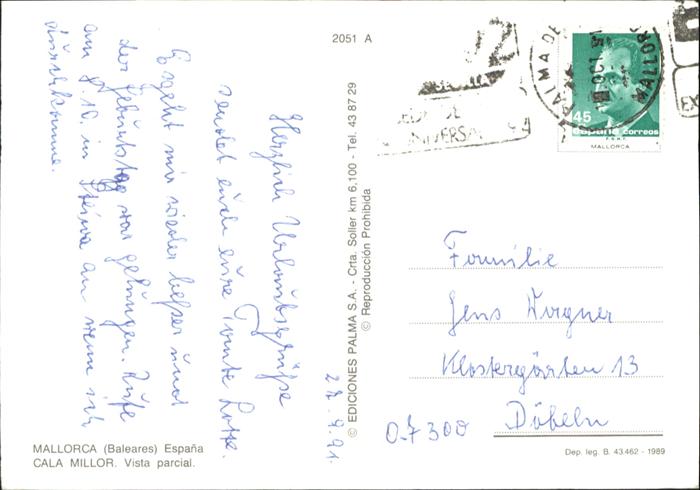 2051 A
PALMA DE MALLORCA
45
España correos
F.N.M.T.
MALLORCA
Herzlich Urlaubsgrüße
sendet euch eure Tante Lotte.
Es geht mir wieder besser und
der Geburtstag war gelungen. Rufe
am 8.10. in an wenn ich
zurückkomme.
27.9.91.
© EDICIONES PALMA S.A. - Crta. Soller km 6,100 - Tel. 43 87 29
© Reproducción Prohibida
Familie
Jens Wagner
Klostergärten 13
0-7300 Döbeln
MALLORCA (Baleares) España
CALA MILLOR. Vista parcial.
Dep. leg. B. 43.462 - 1989